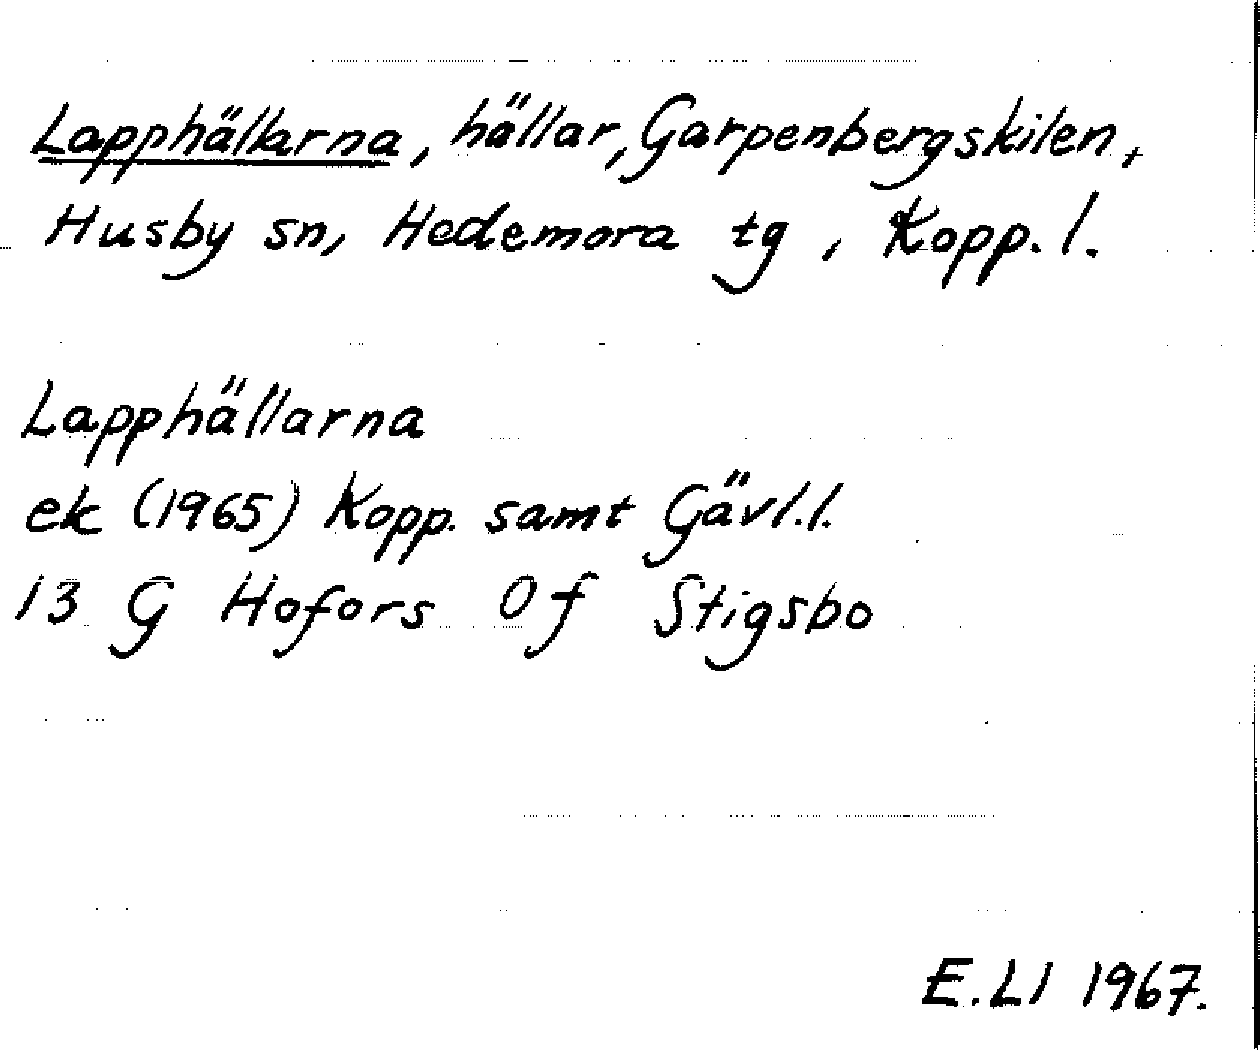 Lapphällarna, hällar, Garpenbergskilen,
Husby sn, Hedemora tg, Kopp. l.
Lapphällarna
ek (1965) Kopp. samt Gävl.l.
13 G Hofors 0f Stigsbo
E.Ll 1967.